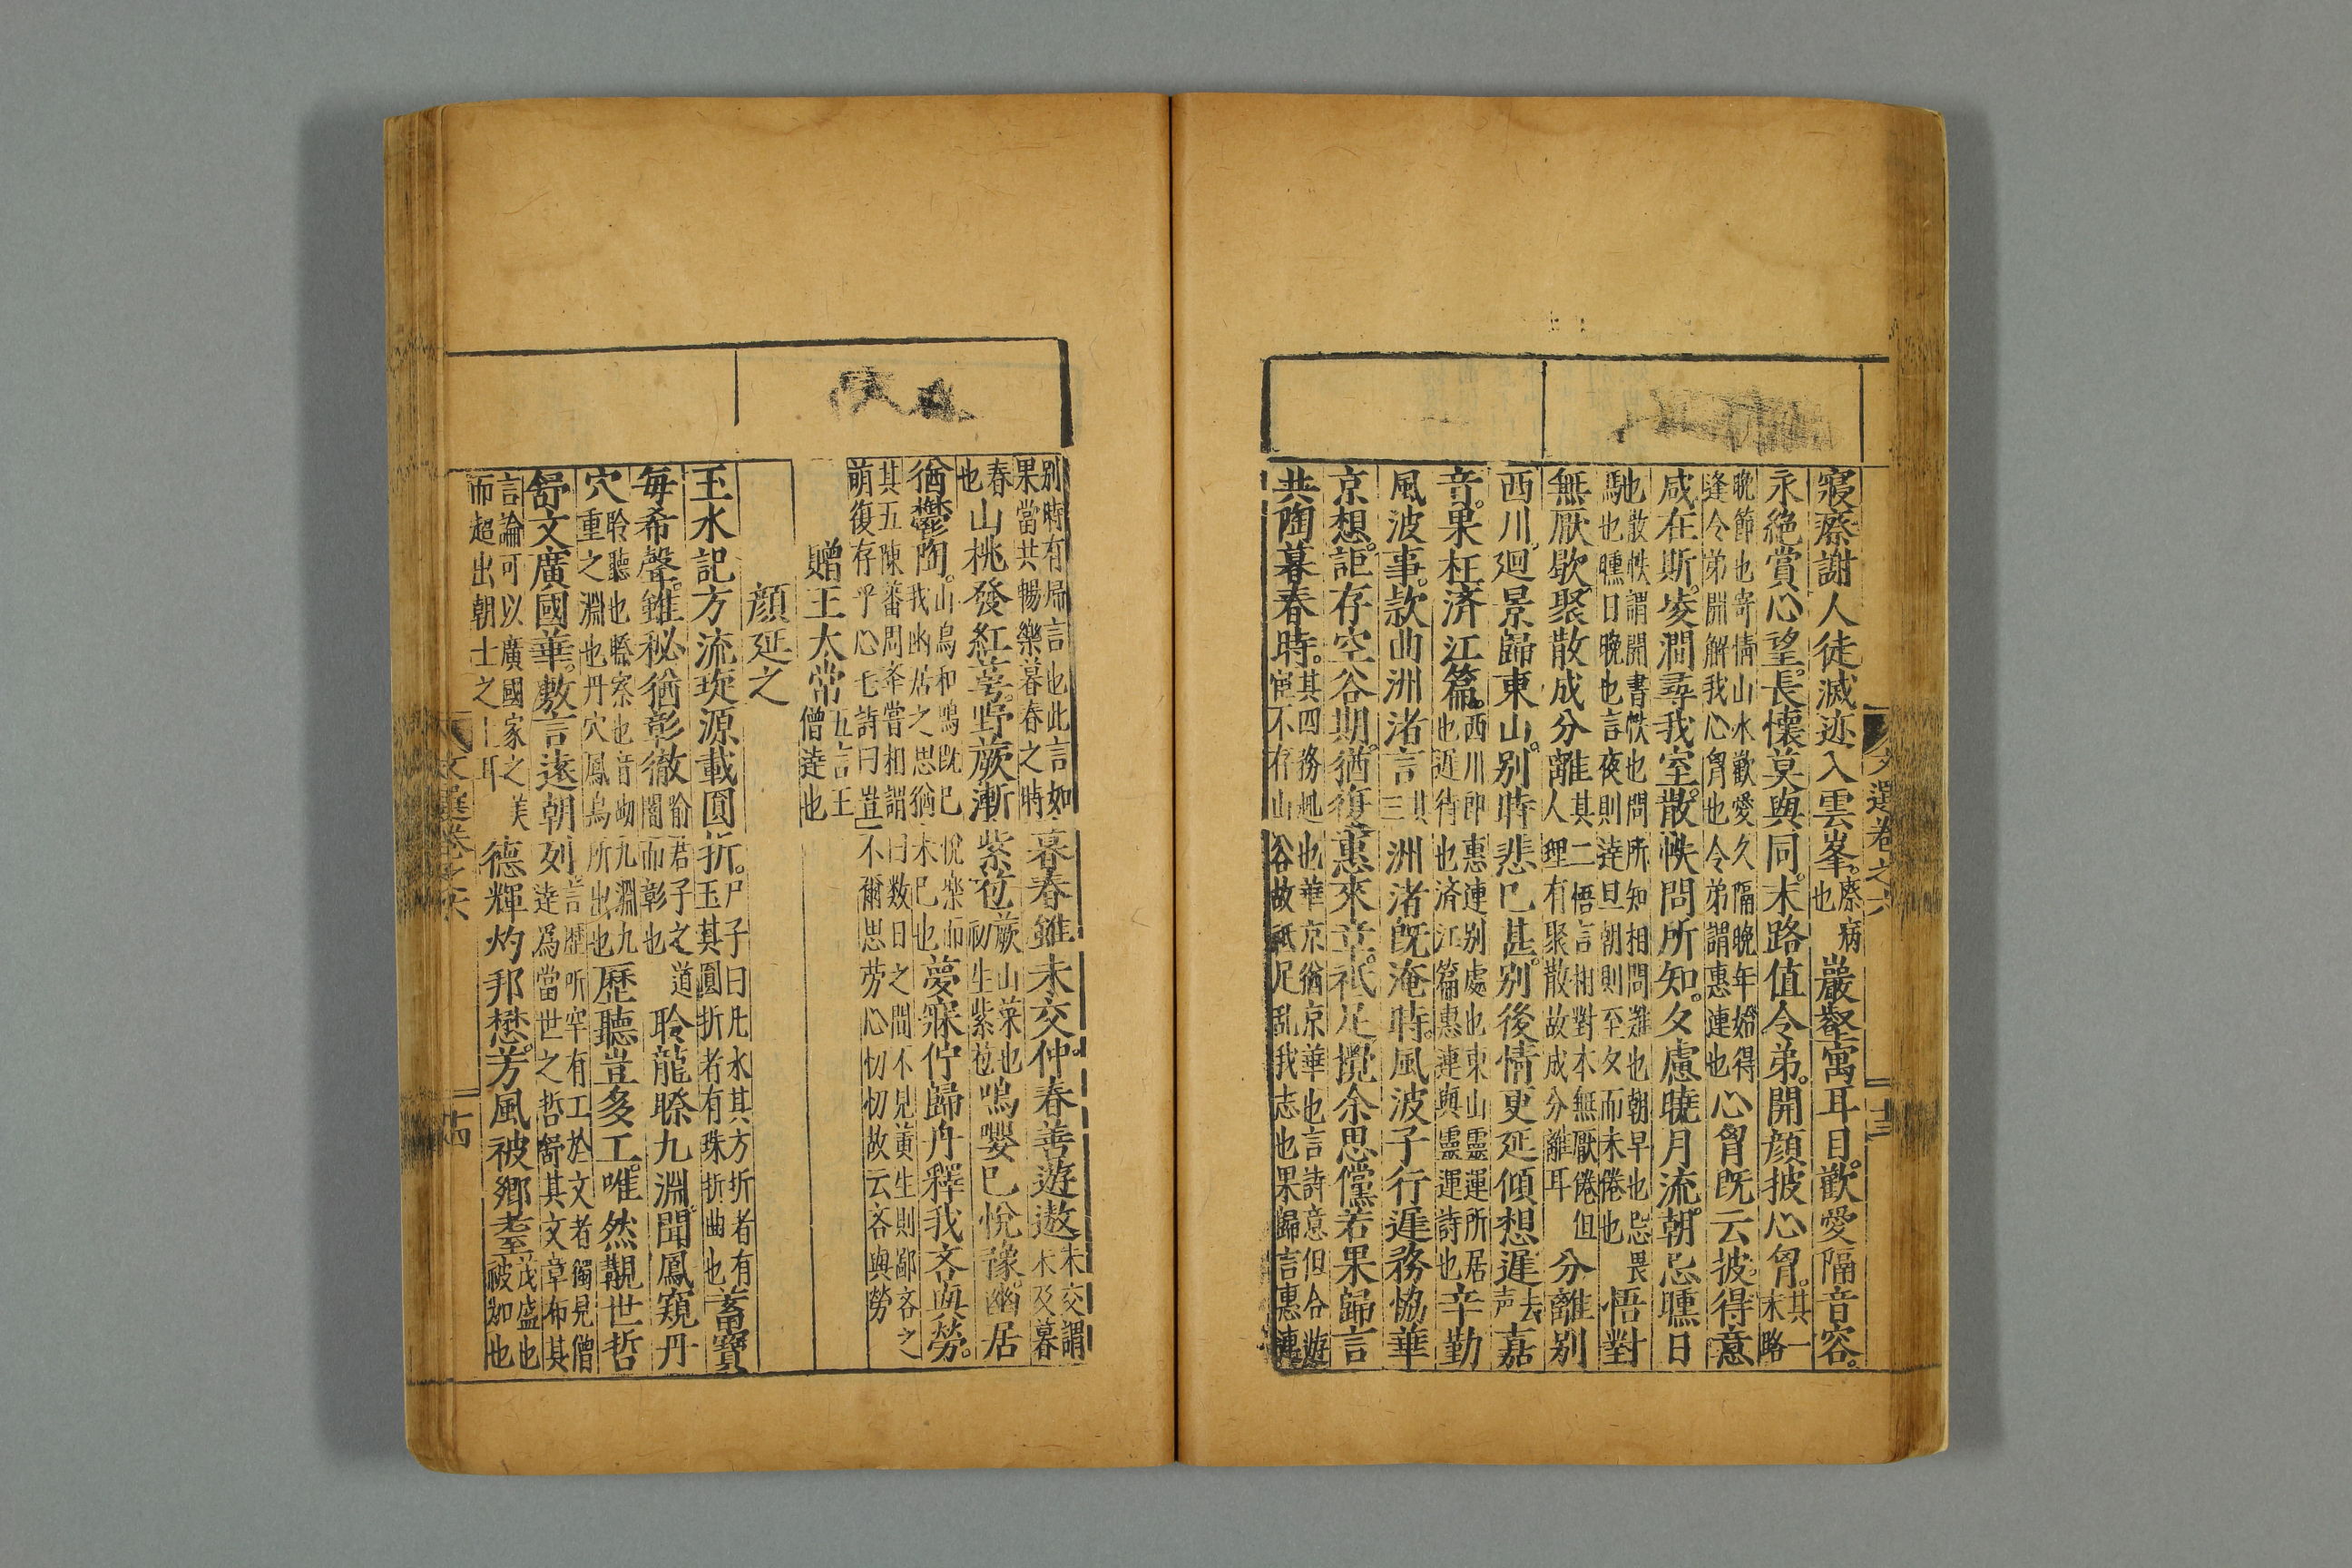 寢瘵謝人徒滅迹入雲峯瘵病也巖壑寓耳目歡愛隔音容
永絕賞心望長懷莫與同末路值令弟開顏披心胷其一末路
晚節也寄情山水歡愛久隔晚年始得逢令弟開解我心胷也令弟謂惠連也心胷既云披得意
咸在斯凌澗尋我室散帙問所知夕慮曉月流朝忌曛日
也散帙謂開書帙也問所知相問難也朝早也忌畏馳也曛日晚也言夜則達旦朝則至夕而未倦也悟對
無厭歇聚散成分離其二悟言相對本無厭倦但人理有聚散故成分離耳分離別
西川迴景歸東山別時悲已甚別後情更延傾想遲去声嘉
音果枉濟江篇西川即惠連別處也東山靈運所居也近待也濟江篇惠連與靈運詩也辛勤
風波事款曲洲渚言其三洲渚既淹時風波子行遲務協華
京想詎存空谷期猶復惠來章祇足攪余思儻若果歸言
共陶暮春時其四務也華京猶京華也言詩意但合遊宦不存山谷故祇足亂我志也果歸言惠連
別時有歸言也此言如果當共暢樂暮春之時暮春雖未交仲春善遊遨未交謂未及暮
春也山桃發紅萼野蕨漸紫苞蕨山菜也初生紫苞鳴嚶已悅豫幽居
猶鬱陶山鳥和鳴既已悅樂而我幽居之思猶未已也夢寐佇歸舟釋我吝與勞
其五陳蕃周舉嘗相謂曰数日之間不見黃生則鄙吝之萌復存乎心毛詩曰豈不爾思劳心忉忉故云吝與勞
贈王太常五言王僧達也
顏延之
玉水記方流琁源載圓折尸子曰凡水其方折者有玉其圓折者有珠折曲也蓄寶
每希聲雖秘猶彰徹喻君子之道闇而彰也聆龍䁱九淵聞鳳窺丹
穴聆聽也䁱察也音坳九淵九重之淵也丹穴鳳鳥所出也歷聽豈多工唯然覯世哲
舒文廣國華敷言遠朝列言歷听罕有工於文者獨見僧達爲當世之哲舒其文章布其
言論可以廣國家之美而超出朝士之上耳德輝灼邦懋芳風被鄉耋茂盛也被加也
文選卷之六
十三
文選卷之六
十四